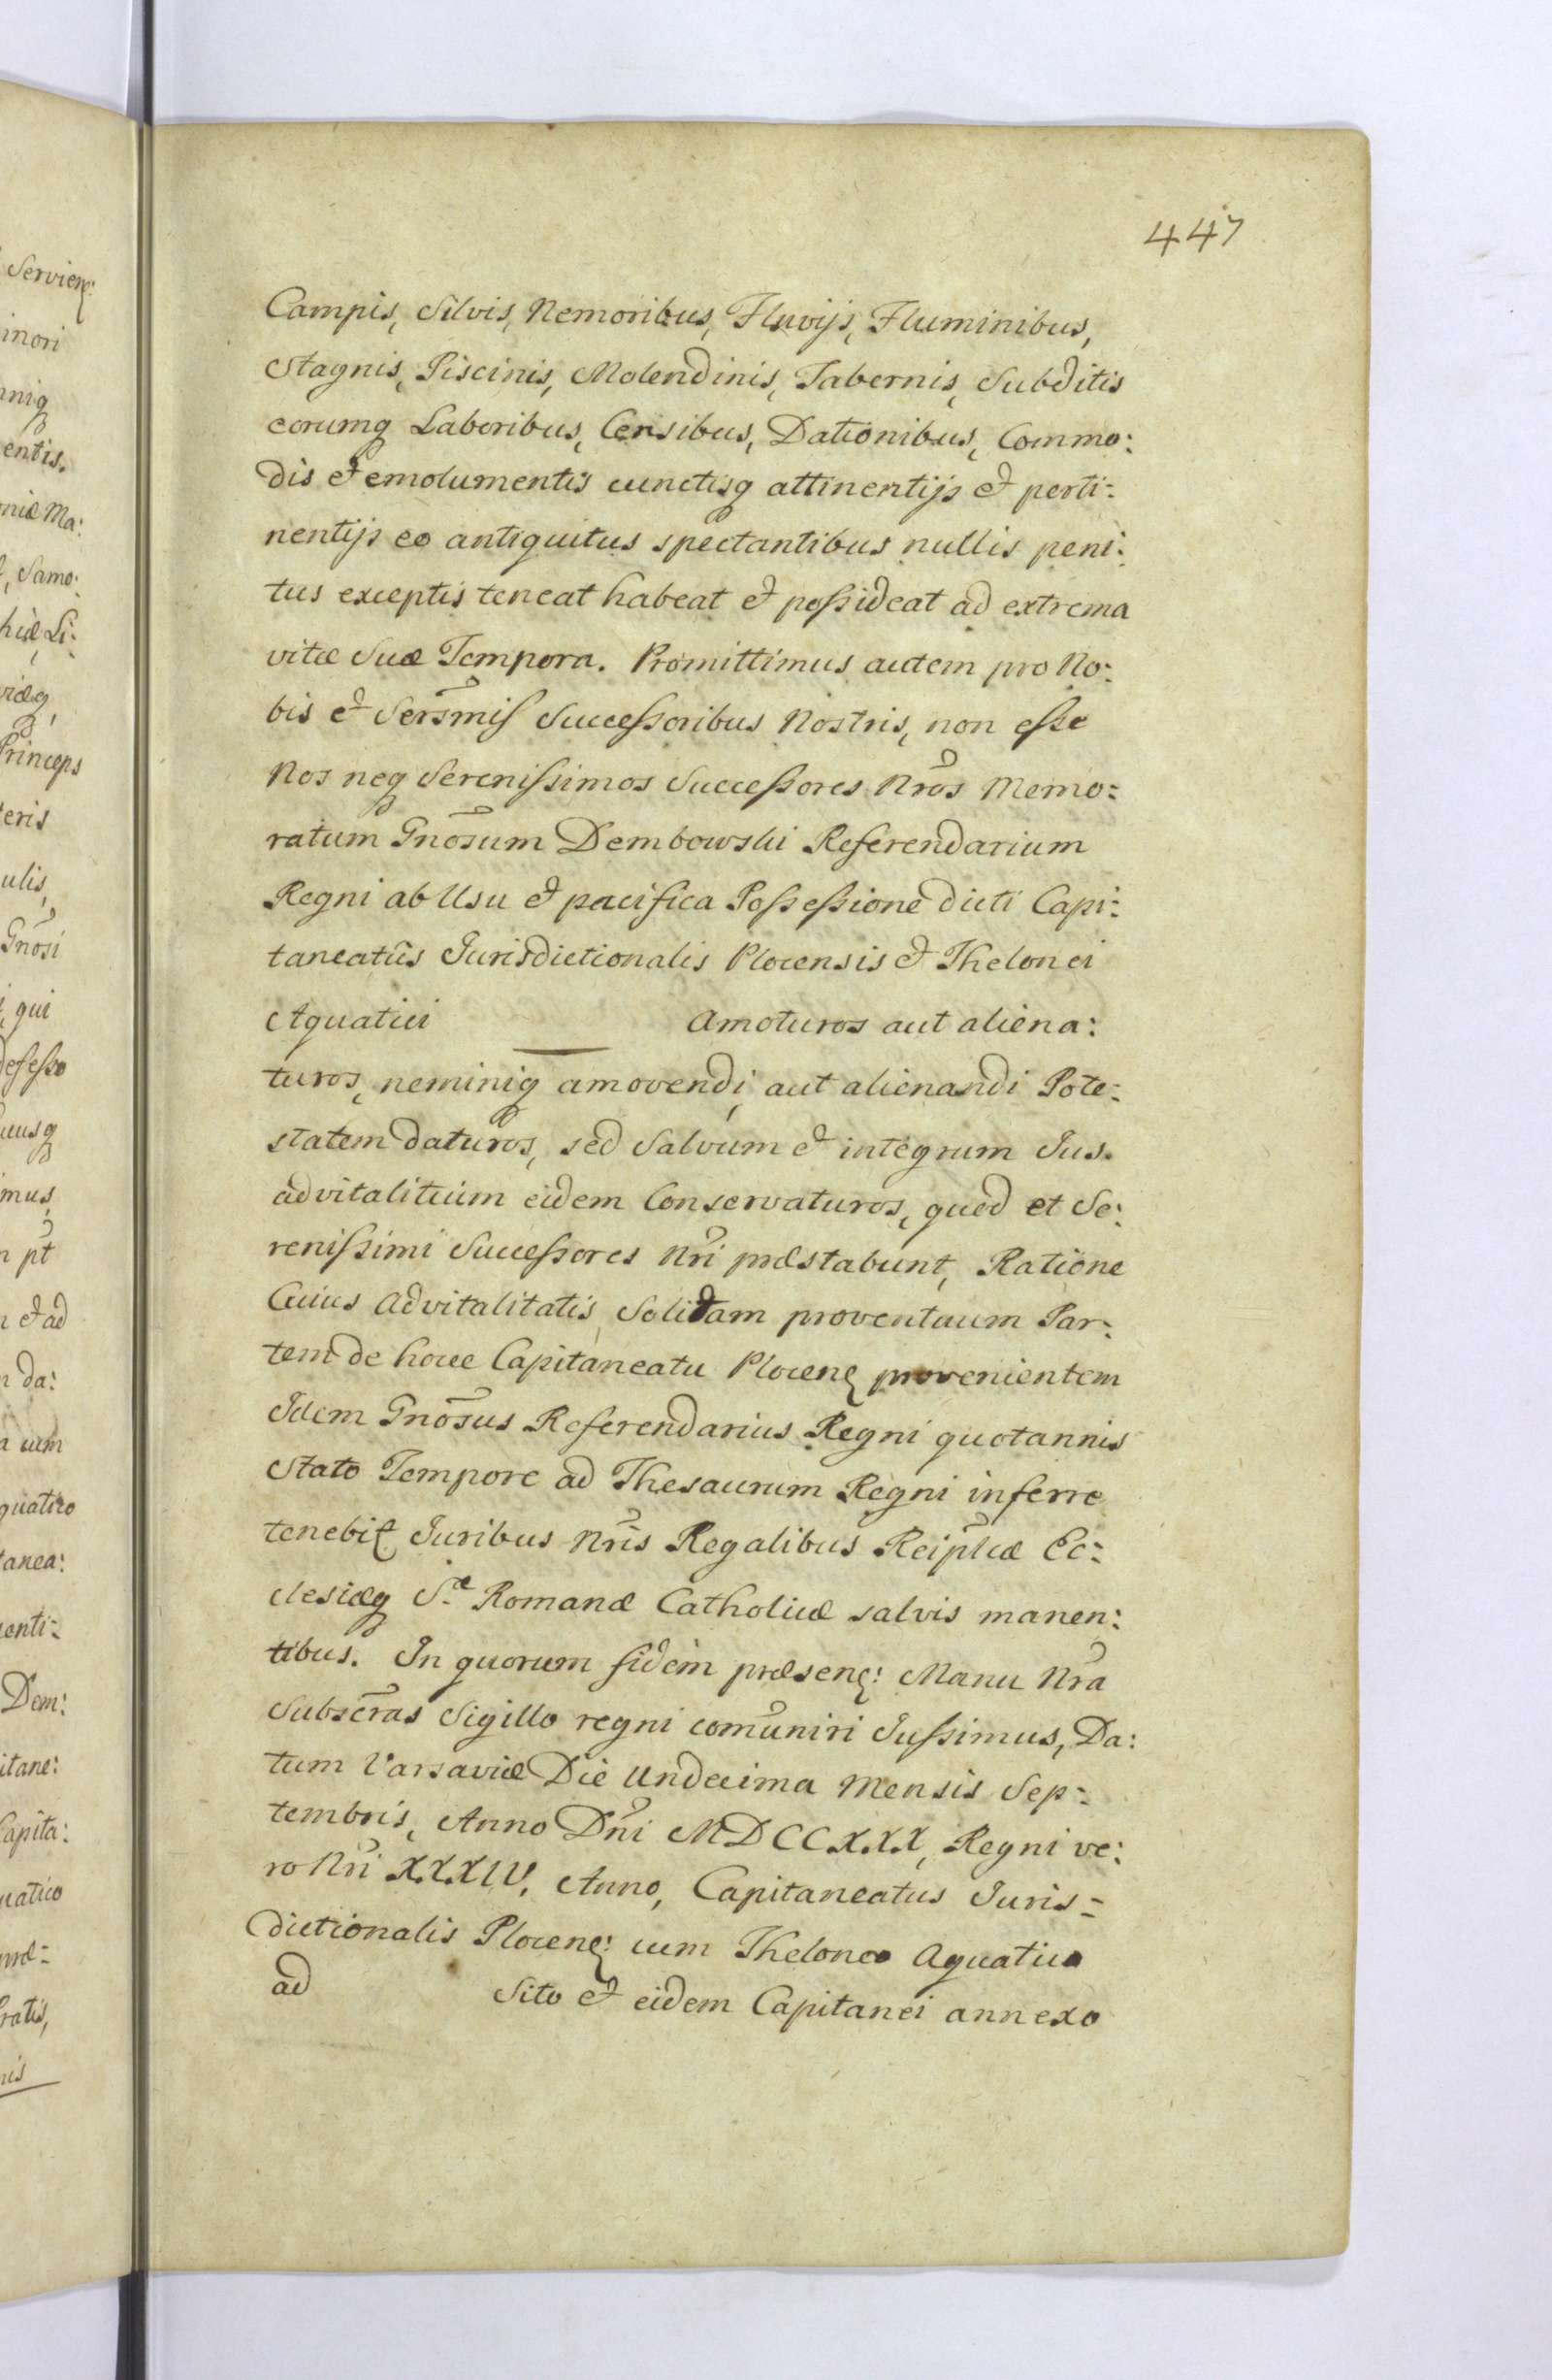 447
Campis, Silvis, Nemoribus, Fluvijs, Fluminibus,
Stagnis, Piscinis, Molendinis, Tabernis, Subditis
eorumq Laboribus, Censibus, Dationibus, Commo:
dis et emolumentis cunctisq attinentijs et perti:
nentijs eo antiquitus spectantibus nullis peni:
tus exceptis teneat habeat et possideat ad extrema
vitæ Suæ Tempora. Promittimus autem pro No:
bis et Serẽmis Successoribus Nostris, non esse
Nos neq Serenissimos Successores Nrõs Memo:
ratum Gnõsum Dembowski Referendarium
Regni ab Usu et pacifica Possessione dicti Capi:
taneatûs Jurisdictionalis Plocensis et Thelonei
Aquatici Amoturos aut aliena:
turos, neminiq amovendi, aut alienandi Pote:
statem daturos, sed Salvum et integrum Jus.
advitalitium eidem Conservaturos, quod et Se:
renissimi Successores Nrĩ præstabunt, Ratione
Cuius Advitalitatis Solidam proventuum Par:
tem de hocce Capitaneatu Plocen provenientem
Idem Gnõsus Referendarius Regni quotannis
Stato Tempore ad Thesaurum Regni inferre
tenebit Juribus Nrĩs Regalibus Reiplicæ Ec:
clesiæq S.æ Romanæ Catholicæ salvis manen:
tibus. In quorum fidem præsen: Manu Nrã
Subscrãs Sigillo regni comũniri Jussimus, Da:
tum Varsaviæ Die Undecima Mensis Sep:
tembris, Anno Dñi MDCCXXX, Regni ve:
ro Nrĩ XXXIV. Anno, Capitaneatus Juris:
dictionalis Plocen: cum Theloneo Aquatico
ad Sito et eidem Capitanei annexo
Servien:
inori
entis.
Samo:
Princeps
eris
ulis,
Gnõsi
qui
mus,
pt
et ad
da:
quatico
tanea:
enti:
Dem:
itane:
Capita:
uatico
ratis,